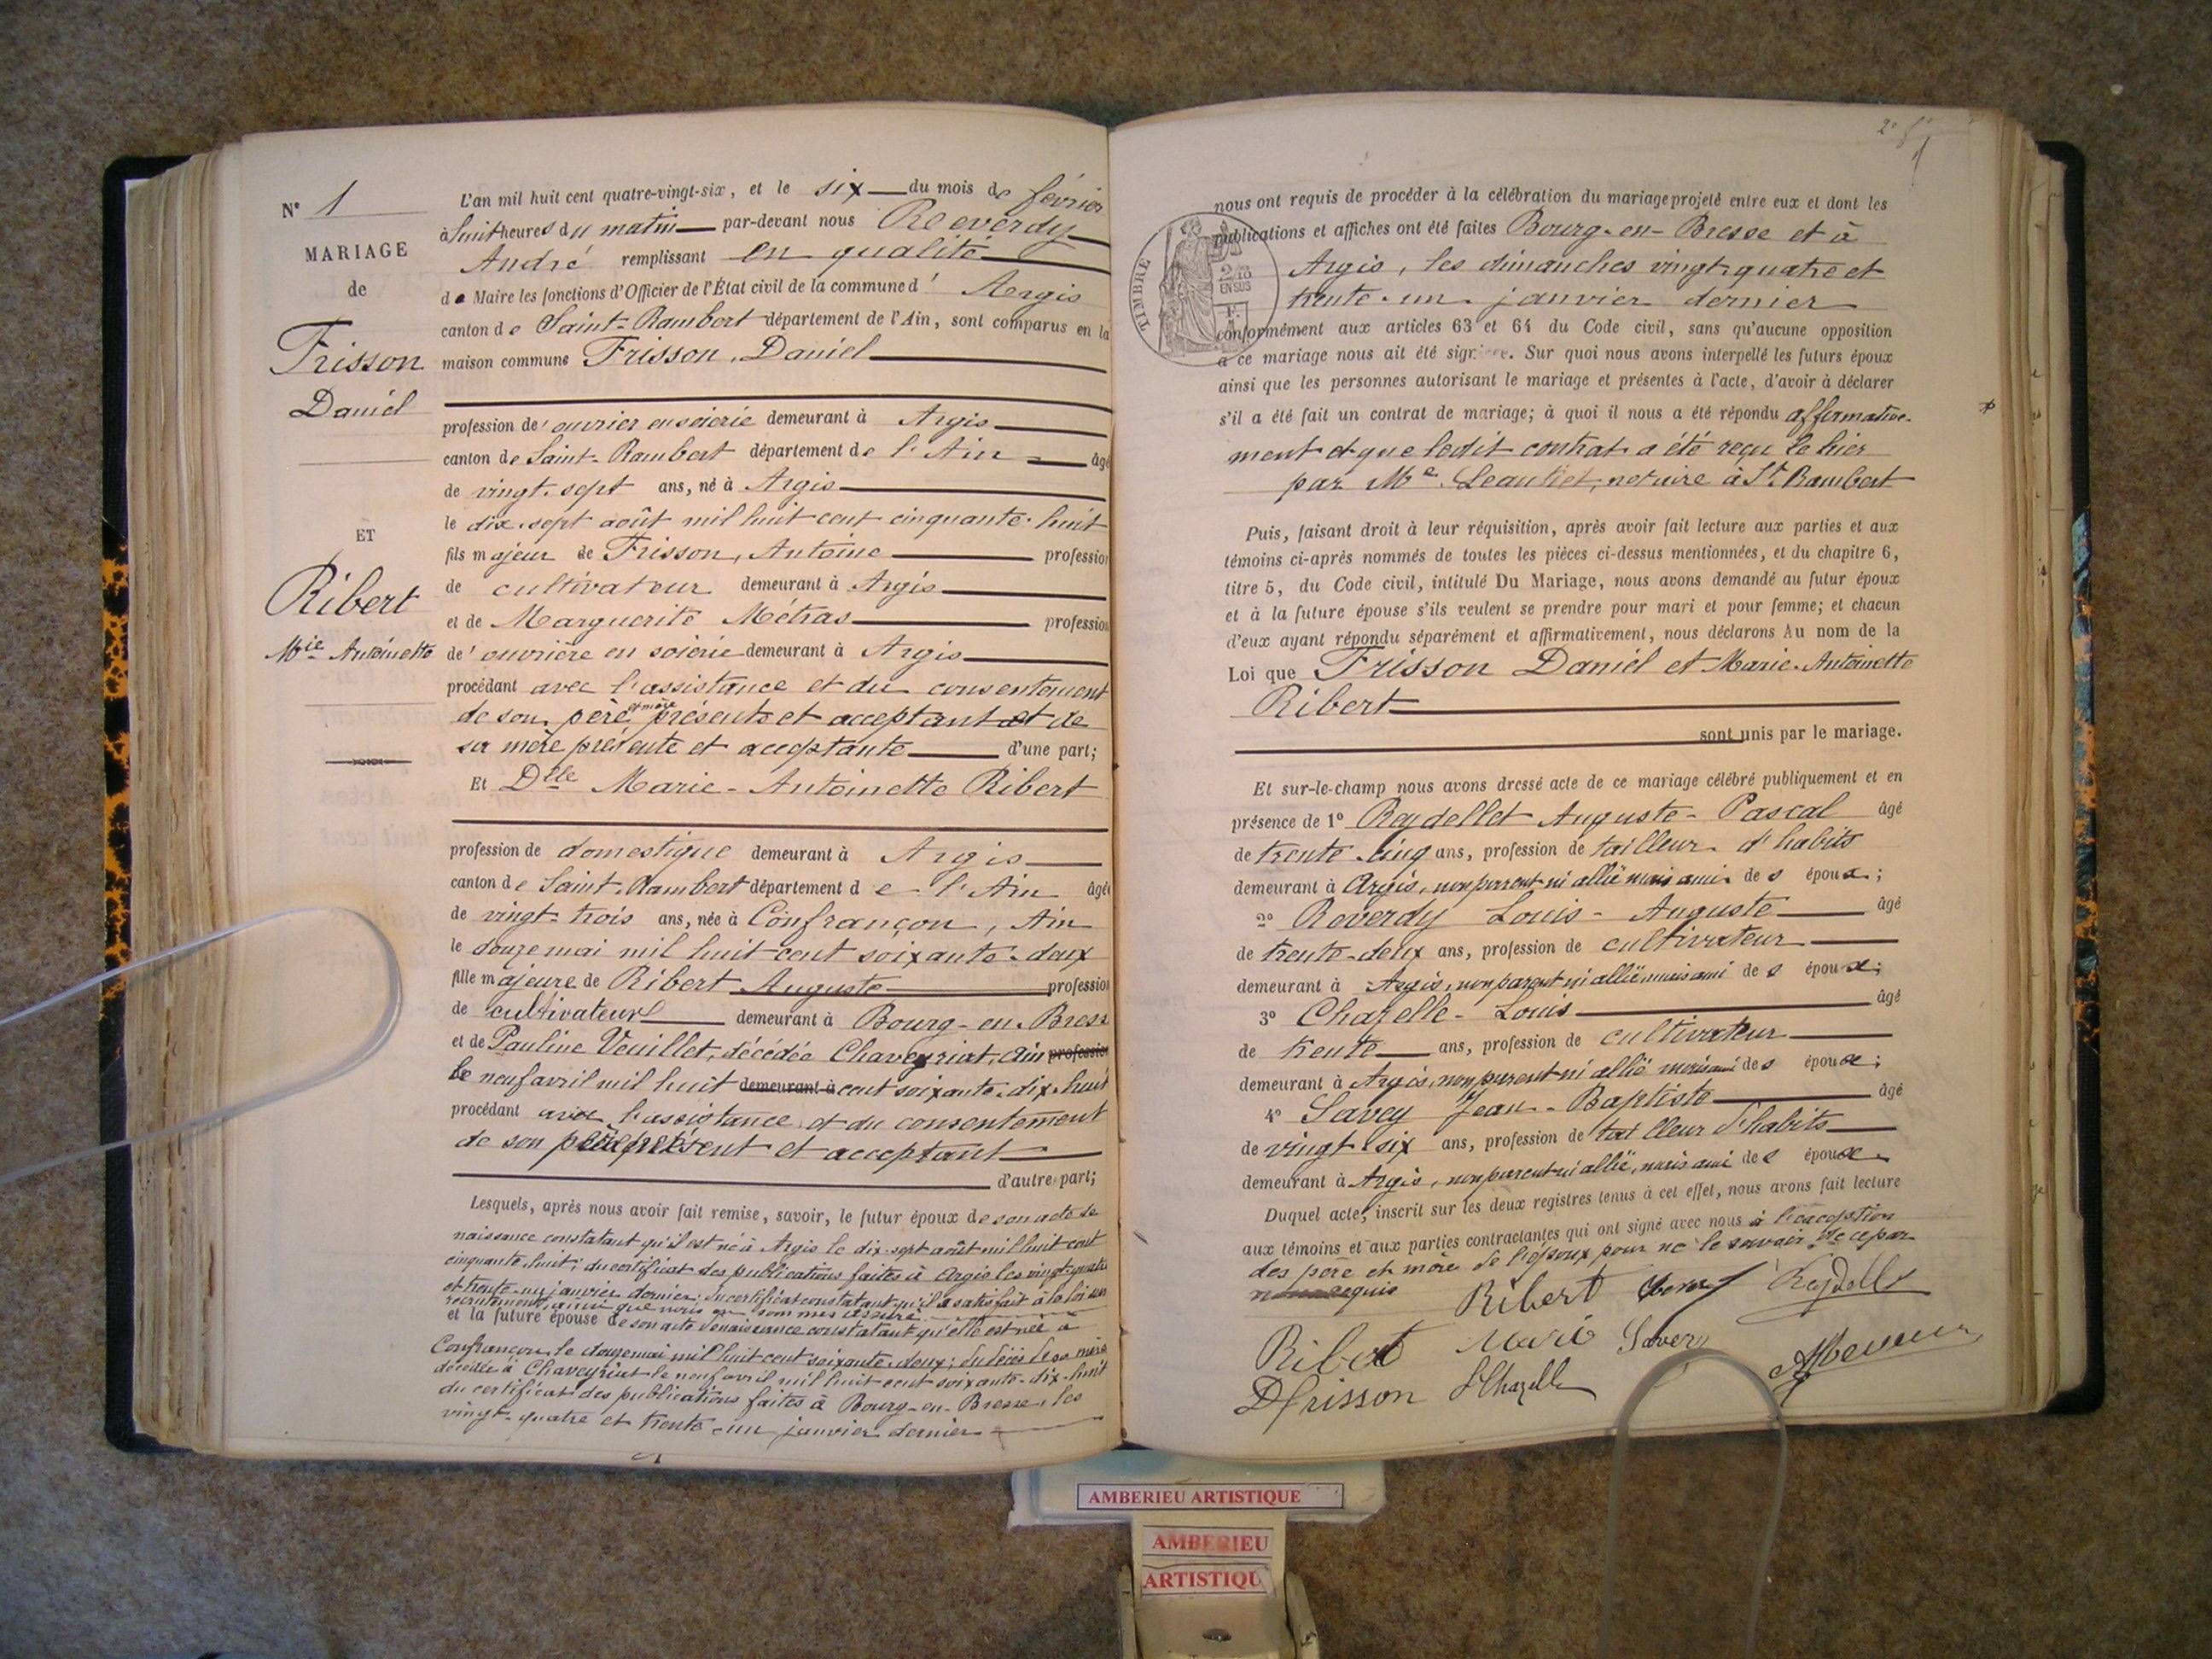 N° 1
MARIAGE
de
Frisson
Daniel
ET
Ribert
Mie Antoinette
L'an mil huit cent quatre-vingt-six, et le six du mois de février
à huit heures du matin par-devant nous Reverdy
André remplissant en qualité
de Maire les fonctions d'Officier de l'État civil de la commune d' Argis
canton de Saint-Rambert département de l'Ain, sont comparus en la
maison commune Frisson, Daniel
profession d' ouvrier en soierie demeurant à Argis
canton de Saint-Rambert département de l'Ain âgé
de vingt-sept ans, né à Argis
le dix-sept août mil huit cent cinquante-huit
fils majeur de Frisson, Antoine profession
de cultivateur demeurant à Argis
et de Marguerite Métras profession
d' ouvrière en soierie demeurant à Argis
procédant avec l'assistance et du consentement
de son père et mère présents et acceptant et de
sa mère présente et acceptante d'une part;
Et Dlle Marie-Antoinette Ribert
profession de domestique demeurant à Argis
canton de Saint-Rambert département de l'Ain âgée
de vingt-trois ans, née à Confrançon, Ain
le douze mai mil huit cent soixante-deux
fille majeure de Ribert Auguste profession
de cultivateur demeurant à Bourg-en-Bresse
et de Pauline Veuillet, décédée Chaveyriat, Ain profession
le neuf avril mil huit demeurant à cent soixante-dix-huit
procédant avec l'assistance et du consentement
de son père présent et acceptant
d'autre part;
Lesquels, après nous avoir fait remise, savoir, le futur époux de son acte de
naissance constatant qu'il est né à Argis le dix-sept août mil huit cent
cinquante-huit; du certificat des publications faites à Argis les vingt-quatre
et trente-un janvier dernier; du certificat constatant qu'il a satisfait à la loi sur
recrutement, ainsi que nous en sommes assuré
et la future épouse de son acte de naissance constatant qu'elle est née à
Confrançon, le douze mai mil huit cent soixante-deux; du décès de sa mère
décédée à Chaveyriat le neuf avril mil huit cent soixante-dix-huit
du certificat des publications faites à Bourg-en-Bresse, les
vingt-quatre et trente-un janvier dernier
nous ont requis de procéder à la célébration du mariage projeté entre eux et dont les
publications et affiches ont été faites Bourg-en-Bresse et à
Argis, les dimanches vingt-quatre et
trente-un janvier dernier
TIMBRE
2/10
EN SUS
conformément aux articles 63 et 64 du Code civil, sans qu'aucune opposition
à ce mariage nous ait été signifiée. Sur quoi nous avons interpellé les futurs époux
ainsi que les personnes autorisant le mariage et présentes à l'acte, d'avoir à déclarer
s'il a été fait un contrat de mariage; à quoi il nous a été répondu affirmative-
ment et que ledit contrat a été reçu le hier
par Me notaire à St Rambert
Puis, faisant droit à leur réquisition, après avoir fait lecture aux parties et aux
témoins ci-après nommés de toutes les pièces ci-dessus mentionnées, et du chapitre 6,
titre 5, du Code civil, intitulé Du Mariage, nous avons demandé au futur époux
et à la future épouse s'ils veulent se prendre pour mari et pour femme; et chacun
d'eux ayant répondu séparément et affirmativement, nous déclarons Au nom de la
Loi que Frisson Daniel et Marie-Antoinette
Ribert
sont unis par le mariage.
Et sur-le-champ nous avons dressé acte de ce mariage célébré publiquement et en
présence de 1° Reydellet Auguste-Pascal âgé
de trente-cinq ans, profession de tailleur d'habits
demeurant à Argis, non parent ni allié mais ami des époux;
2° Reverdy Louis-Auguste âgé
de trente-deux ans, profession de cultivateur
demeurant à Argis, non parent ni allié mais ami des époux;
3° Chazelle-Louis âgé
de trente ans, profession de cultivateur
demeurant à Argis, non parent ni allié mais ami des époux;
4° Savey Jean-Baptiste âgé
de vingt six ans, profession de tailleur d'habits
demeurant à Argis, non parent ni allié, mais ami des époux.
Duquel acte, inscrit sur les deux registres tenus à cet effet, nous avons fait lecture
aux témoins et aux parties contractantes qui ont signé avec nous à l'exception
des père et mère de l'époux pour ne le savoir de ce par
nous requis
Ribert Reydellet
Ribert Marie Savey
D Frisson L Chazelle
AMBERIEU ARTISTIQUE
AMBERIEU
ARTISTIQU